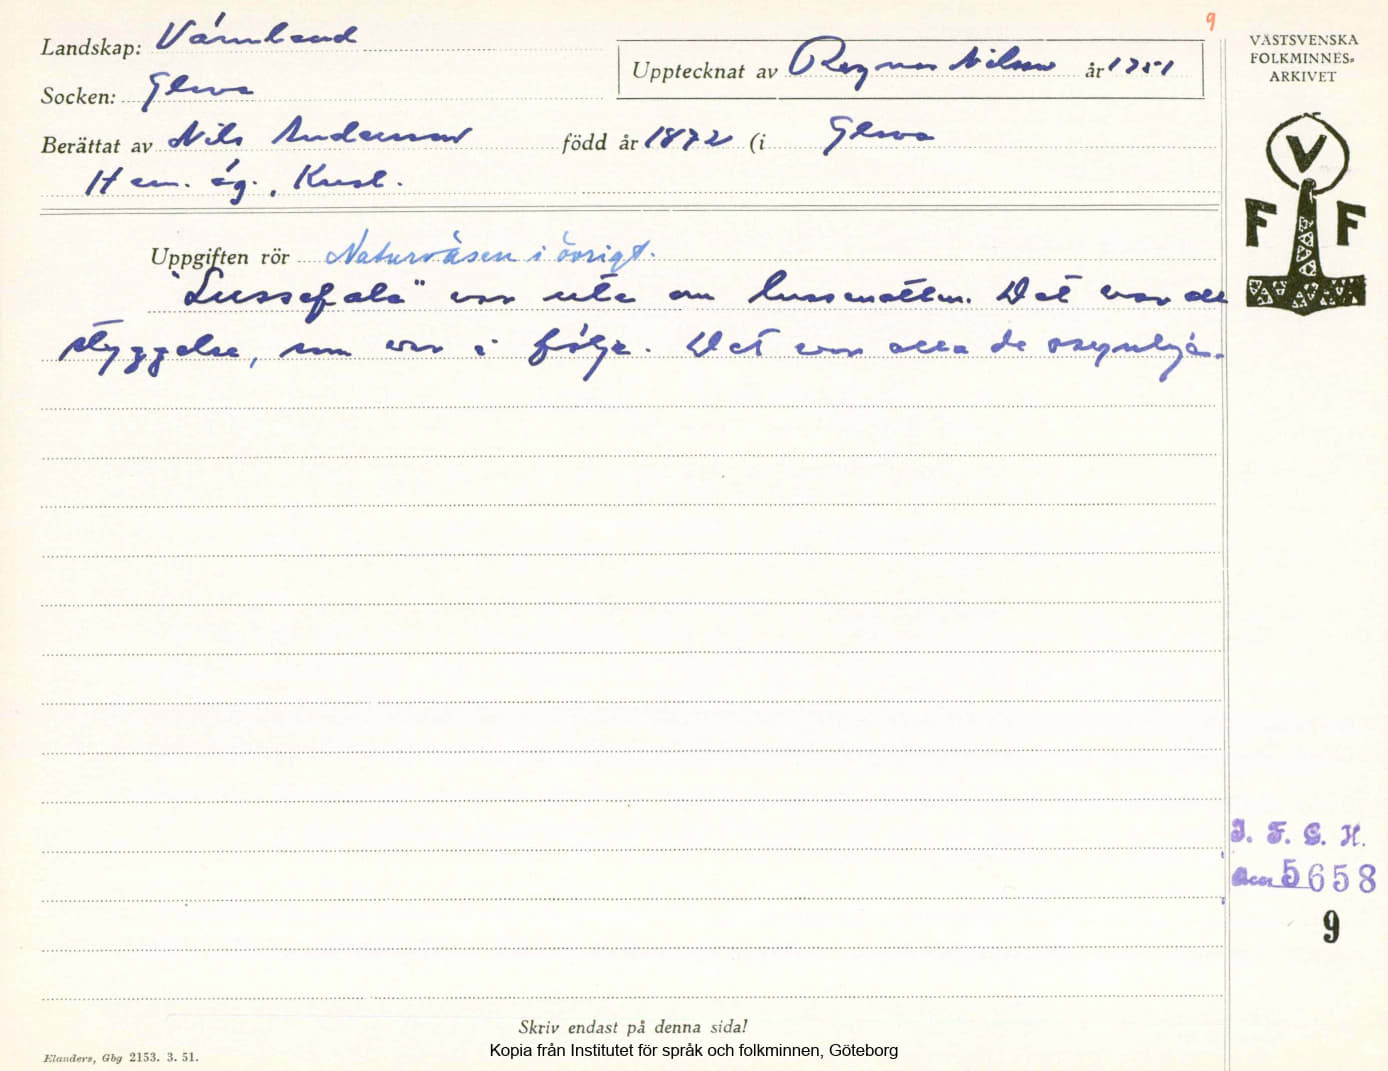 9
Landskap: Värmland
Socken: Glava
Upptecknat av Ragnar Nilsson år 1951
Berättat av Nils Andersson född år 1872 (i Glava
Hem. äg.,
Uppgiften rör Naturväsen i övrigt.
"Lussefala" var ute om lussenatten. Det var all
styggelse, som var i följe. Det var alla de osynliga.
VÄSTSVENSKA
FOLKMINNES-
ARKIVET
V
F F
I. F. G. H.
Acc 5658
9
Skriv endast på denna sida!
Elanders, Gbg 2153. 3. 51.
Kopia från Institutet för språk och folkminnen, Göteborg